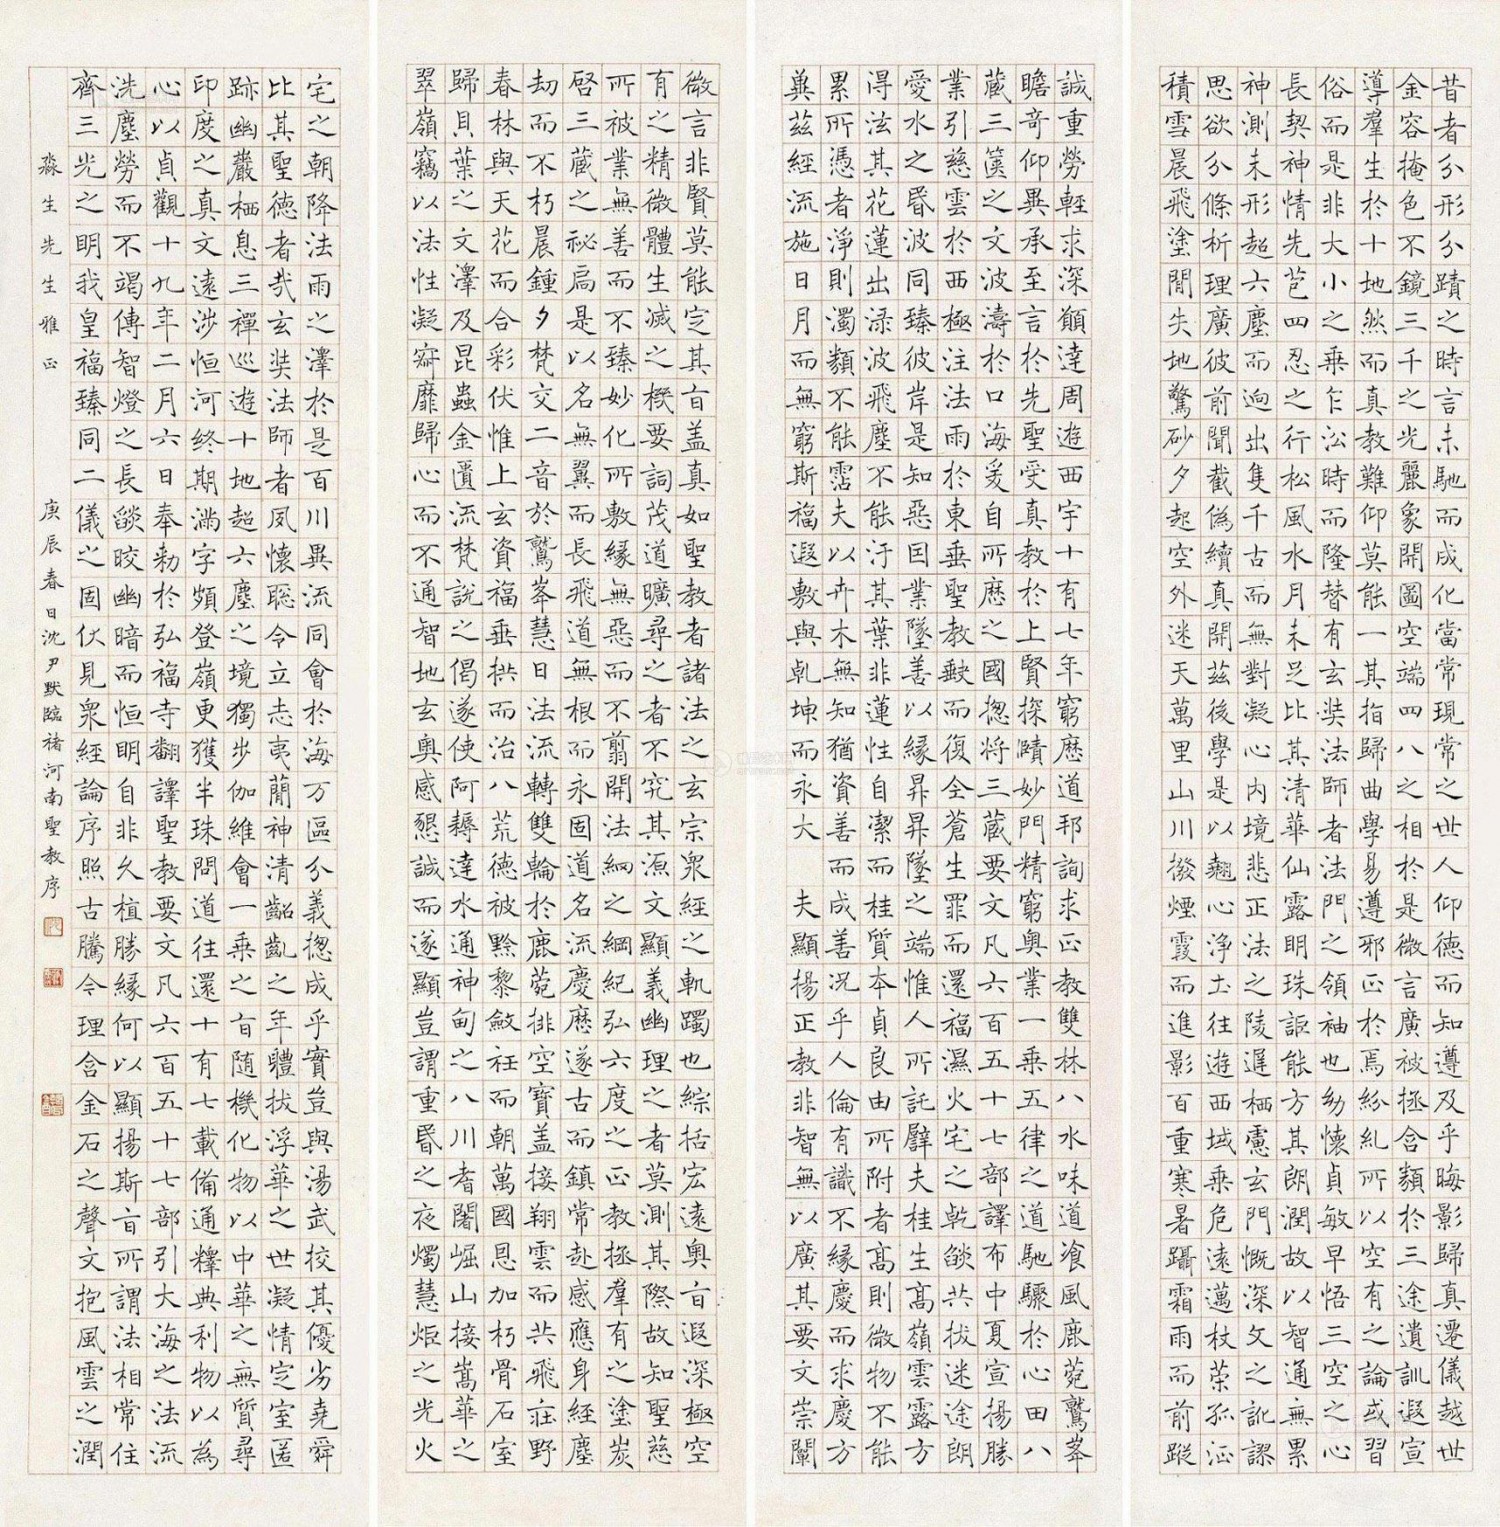 昔者分形分蹟之時言未馳而成化當常現常之世人仰德而知遵及乎晦影歸真遷儀越世
金容掩色不鏡三千之光麗象開圖空端四八之相於是微言廣被拯含類於三途遺訓遐宣
導羣生於十地然而真教難仰莫能一其指歸曲學易遵邪正於焉紛糺所以空有之論或習
俗而是非大小之乘乍沿時而隆替有玄奘法師者法門之領袖也幼懷貞敏早悟三空之心
長契神情先苞四忍之行松風水月未足比其清華仙露明珠詎能方其朗潤故以智通無累
神測未形超六塵而逈出隻千古而無對凝心內境悲正法之陵遲栖慮玄門慨深文之訛謬
思欲分條析理廣彼前聞截偽續真開茲後學是以翹心淨土往遊西域乘危遠邁杖策孤征
積雪晨飛塗閒失地驚砂夕起空外迷天萬里山川撥煙霞而進影百重寒暑躡霜雨而前蹤
誠重勞輕求深願達周遊西宇十有七年窮歷道邦詢求正教雙林八水味道飡風鹿菀鷲峯
瞻奇仰異承至言於先聖受真教於上賢探賾妙門精窮奥業一乘五律之道馳驟於心田八
藏三篋之文波濤於口海爰自所歷之國揔將三藏要文凡六百五十七部譯布中夏宣揚勝
業引慈雲於西極注法雨於東垂聖教缺而復全蒼生罪而還福濕火宅之乾燄共拔迷途朗
愛水之昏波同臻彼岸是知惡因業墜善以緣昇昇墜之端惟人所託譬夫桂生高嶺雲露方
得泫其花蓮出淥波飛塵不能汙其葉非蓮性自潔而桂質本貞良由所附者高則微物不能
累所憑者淨則濁類不能霑夫以卉木無知猶資善而成善況乎人倫有識不緣慶而求慶方
冀茲經流施日月而無窮斯福遐敷與乾坤而永大 夫顯揚正教非智無以廣其要文崇闡
微言非賢莫能定其旨盖真如聖教者諸法之玄宗衆經之軌躅也綜括宏遠奥旨遐深極空
有之精微體生滅之機要詞茂道曠尋之者不究其源文顯義幽理之者莫測其際故知聖慈
所被業無善而不臻妙化所敷緣無惡而不翦開法網之綱紀弘六度之正教拯羣有之塗炭
啓三藏之祕扃是以名無翼而長飛道無根而永固道名流慶歷遂古而鎮常赴感應身經塵
劫而不朽晨鍾夕梵交二音於鷲峯慧日法流轉雙輪於鹿菀排空寶盖接翔雲而共飛莊野
春林與天花而合彩伏惟上玄資福垂拱而治八荒德被黔黎斂衽而朝萬國恩加朽骨石室
歸貝葉之文澤及昆蟲金匱流梵說之偈遂使阿耨達水通神甸之八川耆闍崛山接嵩華之
翠嶺竊以法性凝寂靡歸心而不通智地玄奥感懇誠而遂顯豈謂重昏之夜燭慧炬之光火
宅之朝降法雨之澤於是百川異流同會於海万區分義揔成乎實豈與湯武挍其優劣堯舜
比其聖德者哉玄奘法師者夙懷聡令立志夷簡神清齠齔之年體拔浮華之世凝情定室匿
跡幽巖栖息三禪巡遊十地超六塵之境獨步伽維會一乘之旨随機化物以中華之無質尋
印度之真文遠涉恒河終期滿字頻登嶺更獲半珠問道往還十有七載備通釋典利物以為
心以貞觀十九年二月六日奉勑於弘福寺翻譯聖教要文凡六百五十七部引大海之法流
洗塵勞而不竭傳智燈之長燄皎幽暗而恒明自非久植勝緣何以顯揚斯旨所謂法相常住
齊三光之明我皇福臻同二儀之固伏見衆經論序照古騰今理含金石之聲文抱風雲之潤
淼生先生雅正 庚辰春日沈尹默臨褚河南聖教序